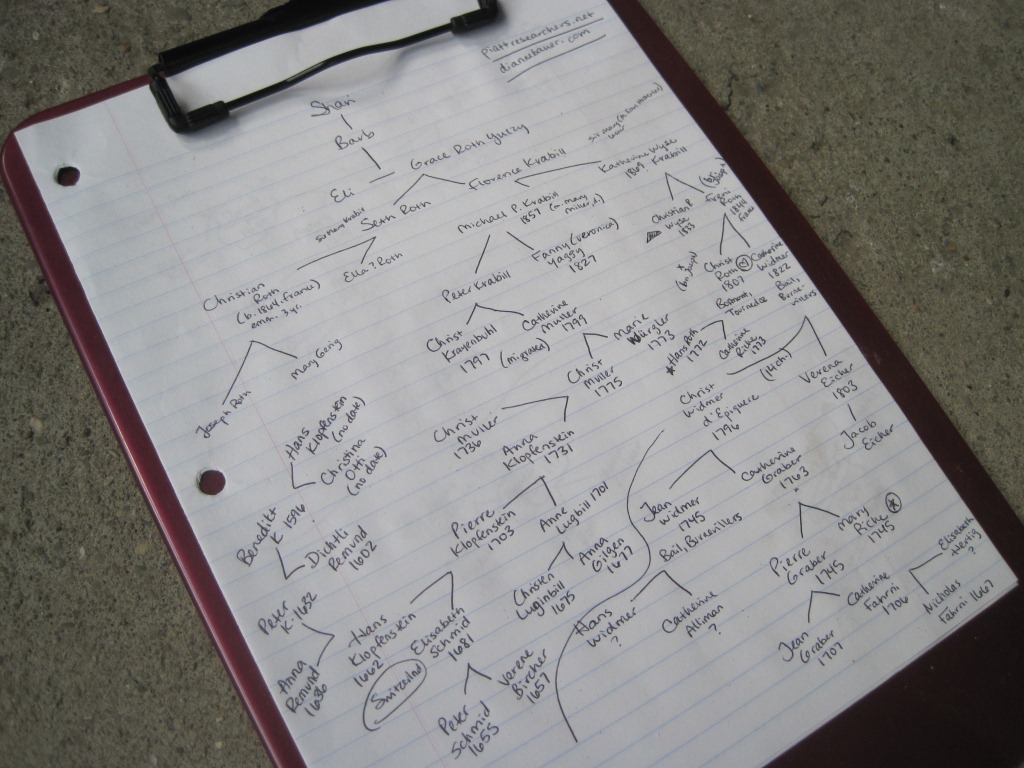 piattresearchers.net
dianebauer.com
Shari
Barb
Eli
Grace Roth Yutzy
Seth Roth
Florence Krabill
Katherine Wyse
1869. Krabill
Michael P. Krabill
1857 (m. mary
miller,d.)
Christian
Roth
(b. 1844, france)
Ella ? Roth
Joseph Roth
Mary Goerig
Peter Krabill
Fanny (veronica)
Yaggy
1827
Christian P.
Wyse
1833
Fanni
Roth
1844
Christ
Krayenbuhl
1797
Catherine
Muller
1797
(migrated)
Christ
Roth
1807
Catherine
Widmer
1822
Christ
Muller
1775
Marie
Würgler
1773
1772
Catherine
Riche
1773
Christ
Widmer
d'Epiquere
1796
(14ch)
Verena
Eicher
1803
Jacob
Eicher
Christ
Muller
1736
Anna
Klopfenstein
1731
Hans
Klopfenstein
(no date)
Christina
Oth
(no date)
Benedikt
K 1596
Dichtli
Remund
1602
Peter
K. 1632
Anna
Remund
1636
Pierre
Klopfenstein
1703
Anne
Lugbill 1701
Hans
Klopfenstein
1662
(Switzerland)
Elisabeth
Schmid
1681
Christen
Luginbill
1675
Anna
Gilgen
1677
Peter
Schmid
1655
Verene
Bircher
1657
Jean
Widmer
1745
Catherine
Graber
1763
Hans
Widmer
?
Catherine
Alliman
?
Pierre
Graber
1745
Mary
Riche
1745
Jean
Graber
1707
Catherine
Fahrni
1706
Elisabeth
?
Nicholas
Fahrni 1667